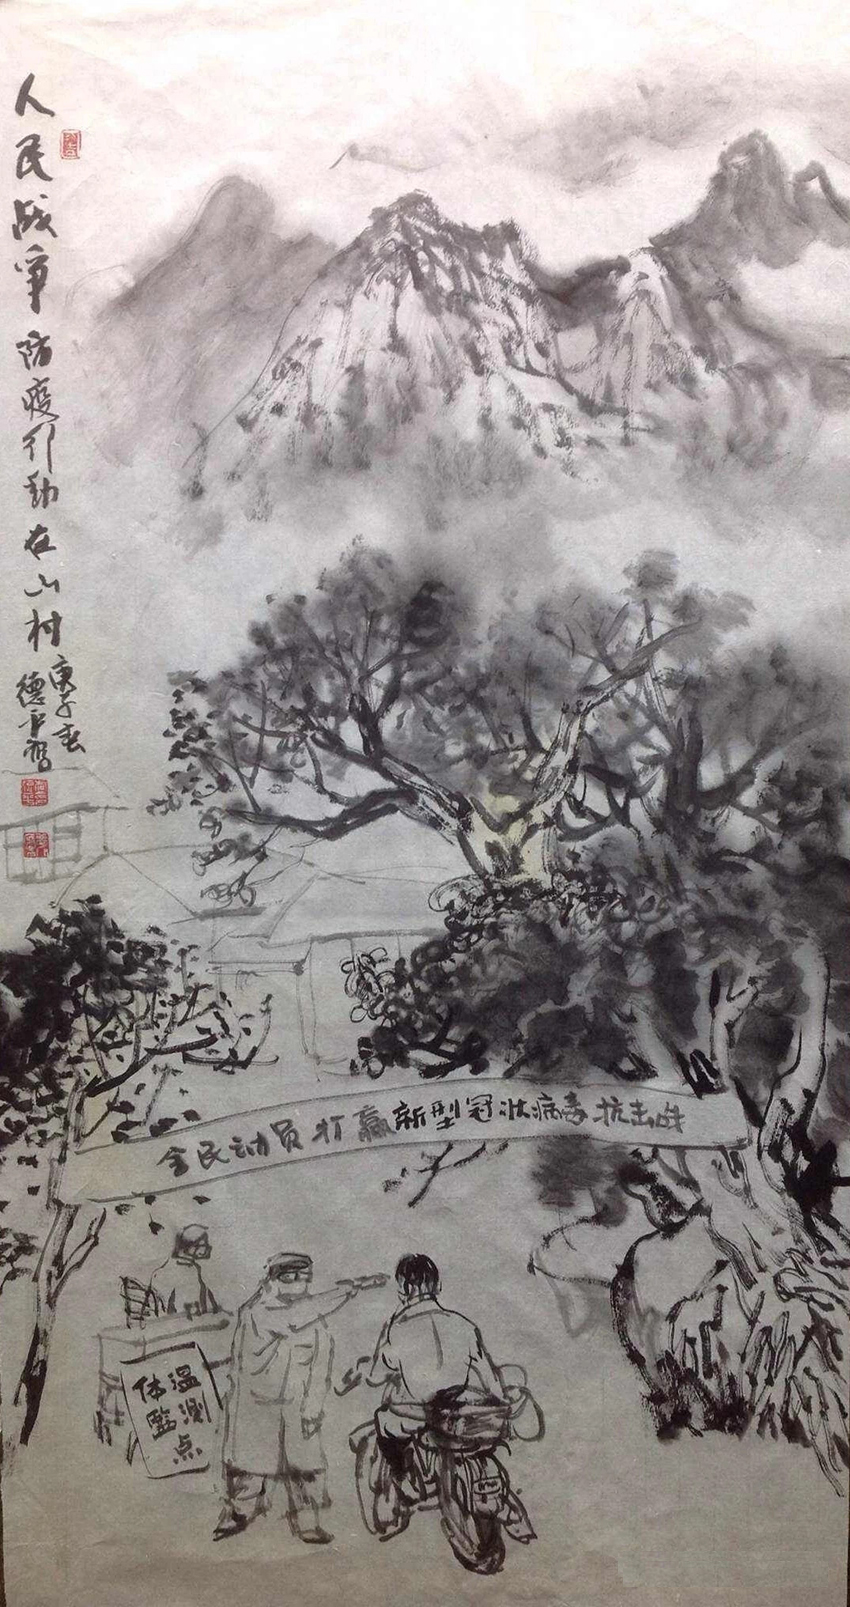 人民战争防疫行动在山村
庚子春
德平写
全民动员打赢新型冠状病毒抗击战
体温
监测点